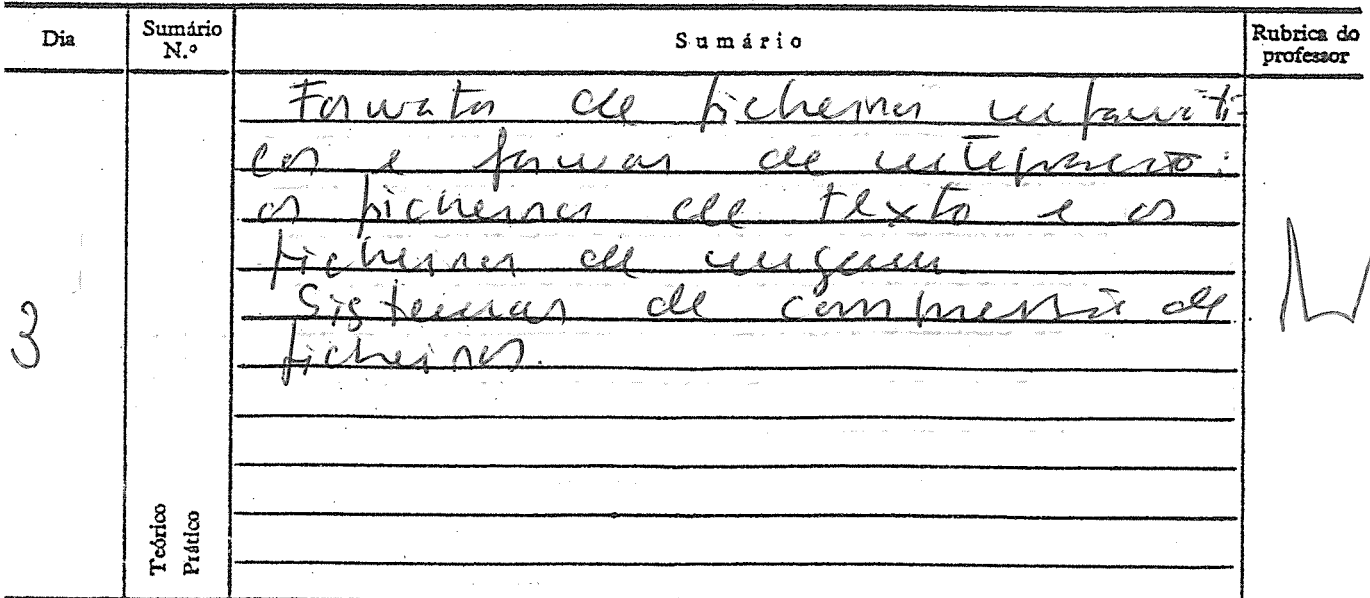 Dia
Sumário N.º
Sumário
Rubrica do professor
Formatos de ficheiros informáti-
cos e formas de integração:
os ficheiros de texto e os
ficheiros de imagem
Sistemas de compressão de
ficheiros.
3
Teórico
Prático